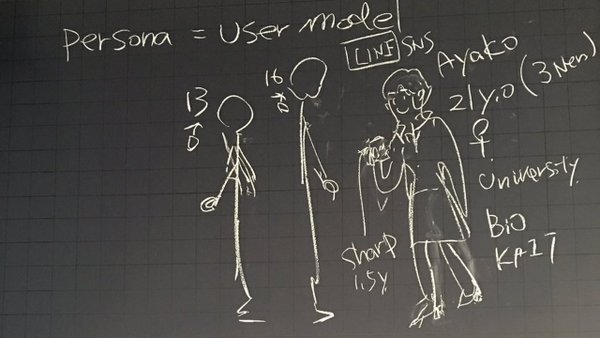 Persona = User model
LINE SNS
Ayako
21 y.o (3 Nen)
♀
University
Bio
KAIT
16
13
Sharp
1.5y